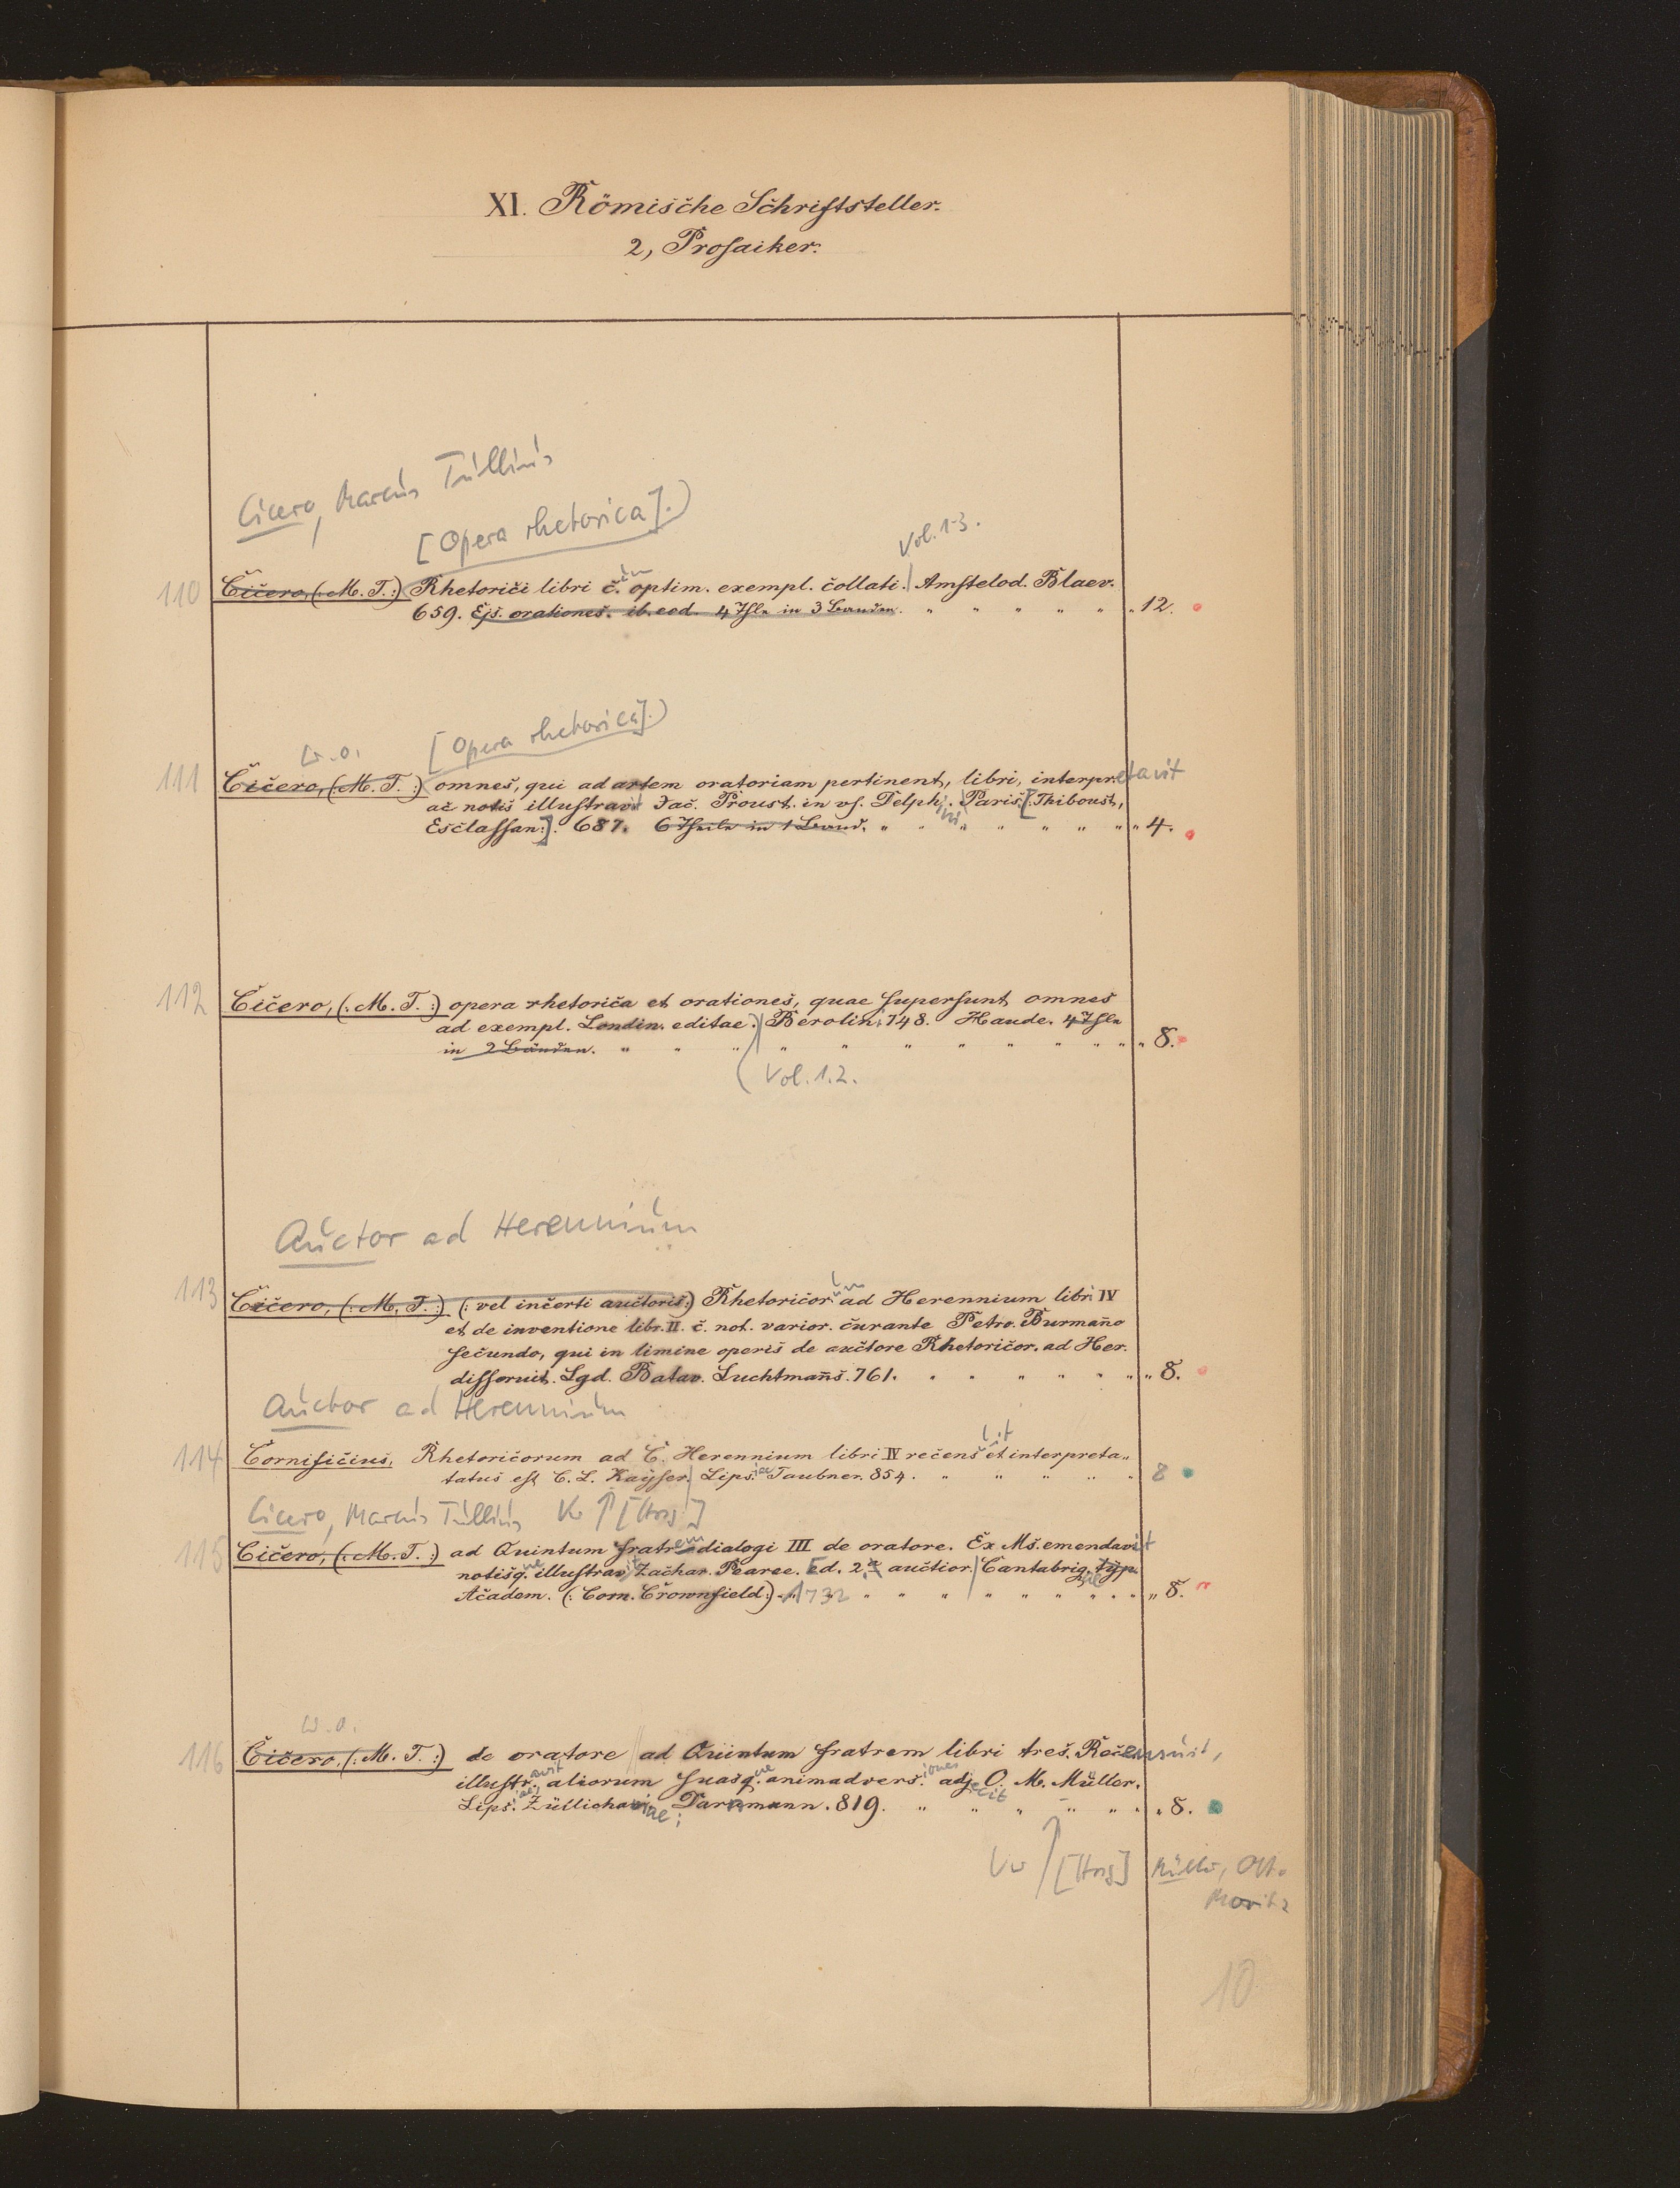 XI. Römische Schriftsteller.
2, Prosaiker.
Cicero, Marcus Tullius
[Opera rhetorica].)
Vol. 1-3.
110 Cicero, (: M. T. :) Rhetorici libri c. optim. exempl. collati. Amstelod. Blaev.
659. Ejs. orationes. ib. eod. 4 Thle in 3 Bänden. " " " " " " 12.
W. o. [Opera rhetorica].)
111 Cicero, (: M. T. :) omnes, qui ad artem oratoriam pertinent, libri, interpretavit
ac notis illustravit Jac. Proust. in us. Delphini. Paris. [Thiboust,
Esclassan]. 687. 6 Theile in 1 Band. " " " " " " " " 4.
112 Cicero, (: M. T. :) opera rhetorica et orationes, quae supersunt omnes
ad exempl. Londin. editae.) Berolin. 748. Haude. 4 Thle
in 2 Bänden. " " " " " " " " " " " " 8.
(Vol. 1.2.
Auctor ad Herennium
113 Cicero, (: M. T. :) (: vel incerti auctoris :) Rhetoricorum ad Herennium libr. IV
et de inventione libr. II. c. not. varior. curante Petro Burmano
secundo, qui in limine operis de auctore Rhetoricor. ad Her.
disseruit. Lgd. Batav. Luchtmans. 761. " " " " " " 8.
Auctor ad Herennium
114 Cornificius, Rhetoricorum ad C. Herennium libri IV recensuit et interpreta„
tatus est C. L. Kayser. Lipsiae Taubner. 854. " " " " " 8
Cicero, Marcus Tullius Vw ↑ [Hrsg]
115 Cicero, (: M. T. :) ad Quintum fratrem dialogi III de oratore. Ex Ms. emendavit
notisque illustravit Zachar. Pearce. Ed. 2.a auctior. Cantabrigiae typ.
Academ. (: Com. Crownfield :) 1732 " " " " " " " " 8.
W. o.
116 Cicero, (: M. T. :) de oratore ad Quintum fratrem libri tres. Recensuit,
illustravit aliorum suasque animadversiones adjecit O. M. Müller.
Lipsiae, Züllichaviae; Darnmann. 819. " " " " " " 8.
Vw ↑ [Hrsg] Müller, Otto
Moritz
10